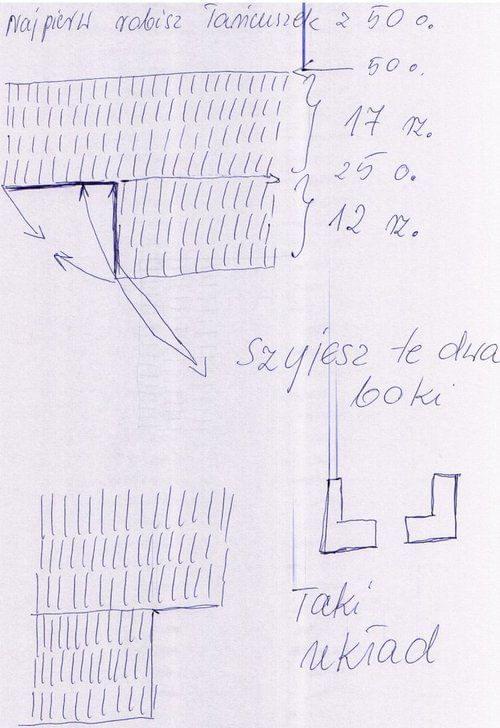 Najpierw robisz łańcuszek z 50 o.
50 o.
17 rz.
25 o.
12 rz.
Szyjesz te dwa
boki
Taki
układ